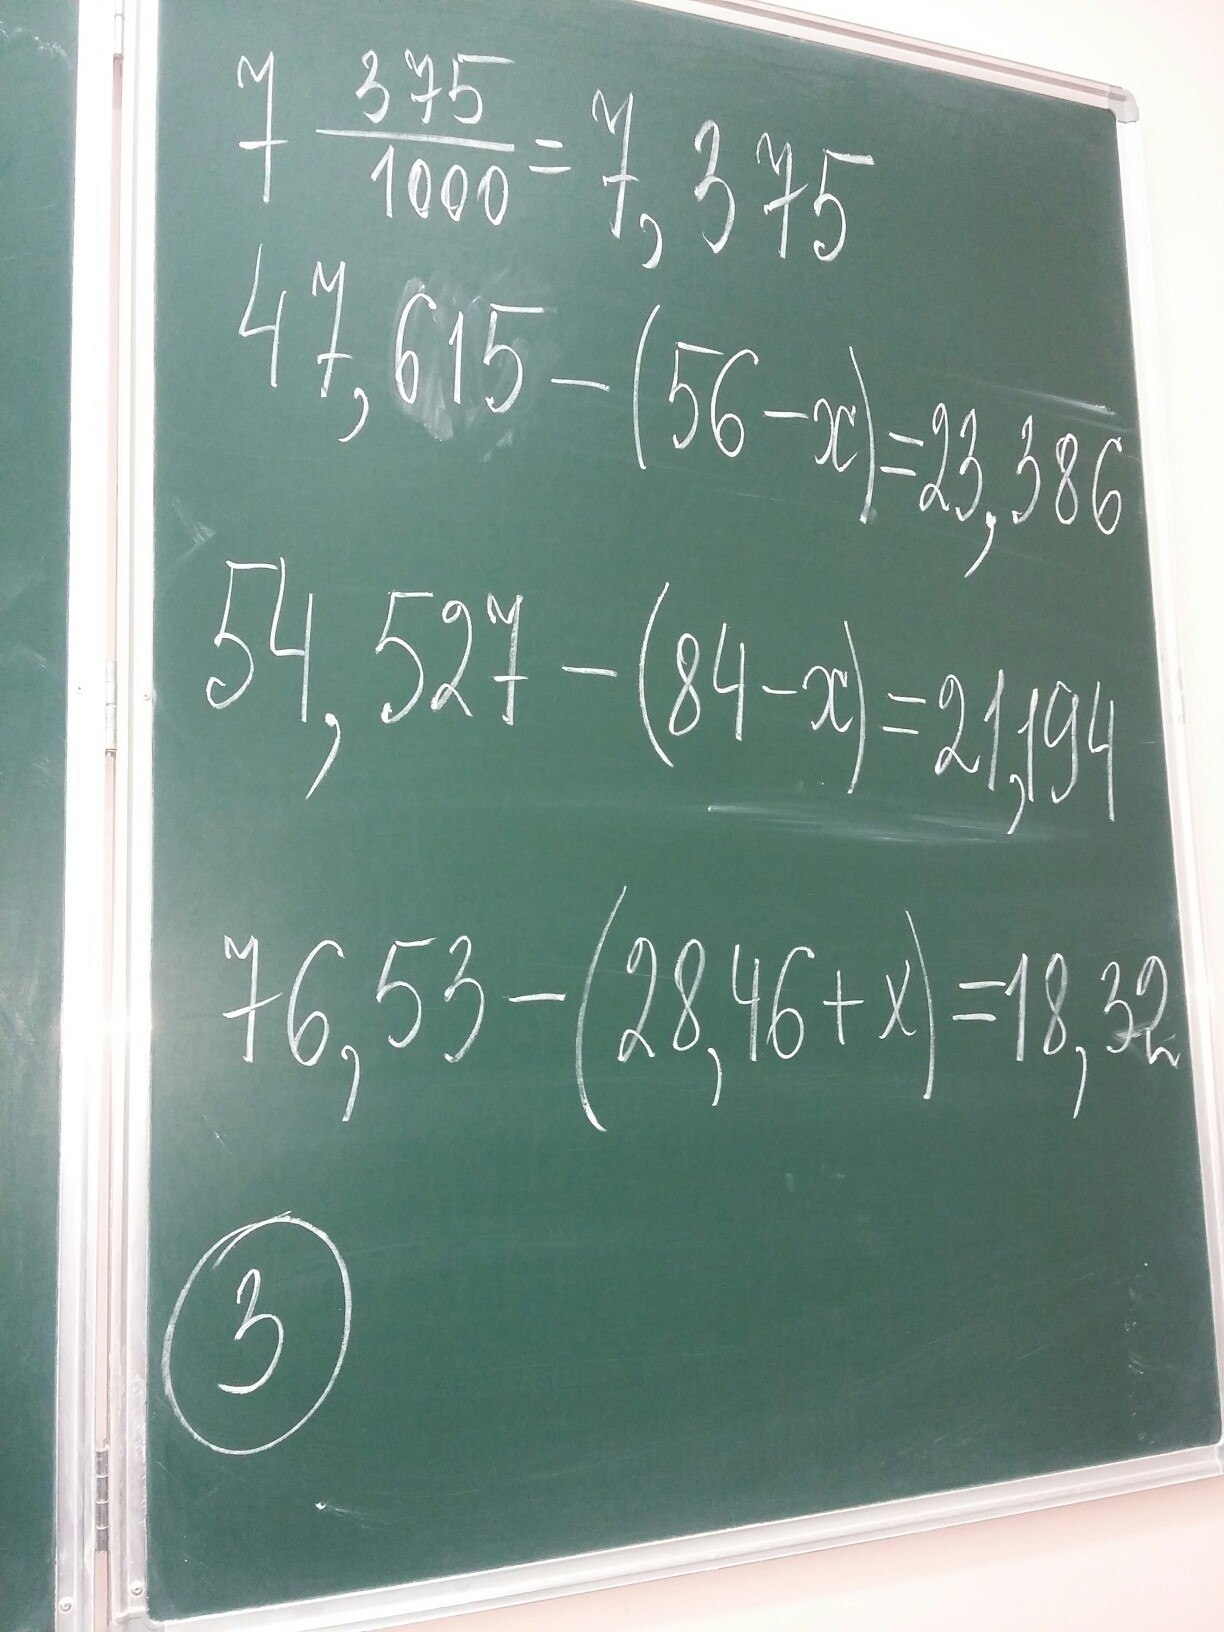 7 375/1000 = 7,375
47,615 − (56 − x) = 23,386
54,527 − (84 − x) = 21,194
76,53 − (28,46 + x) = 18,32
3